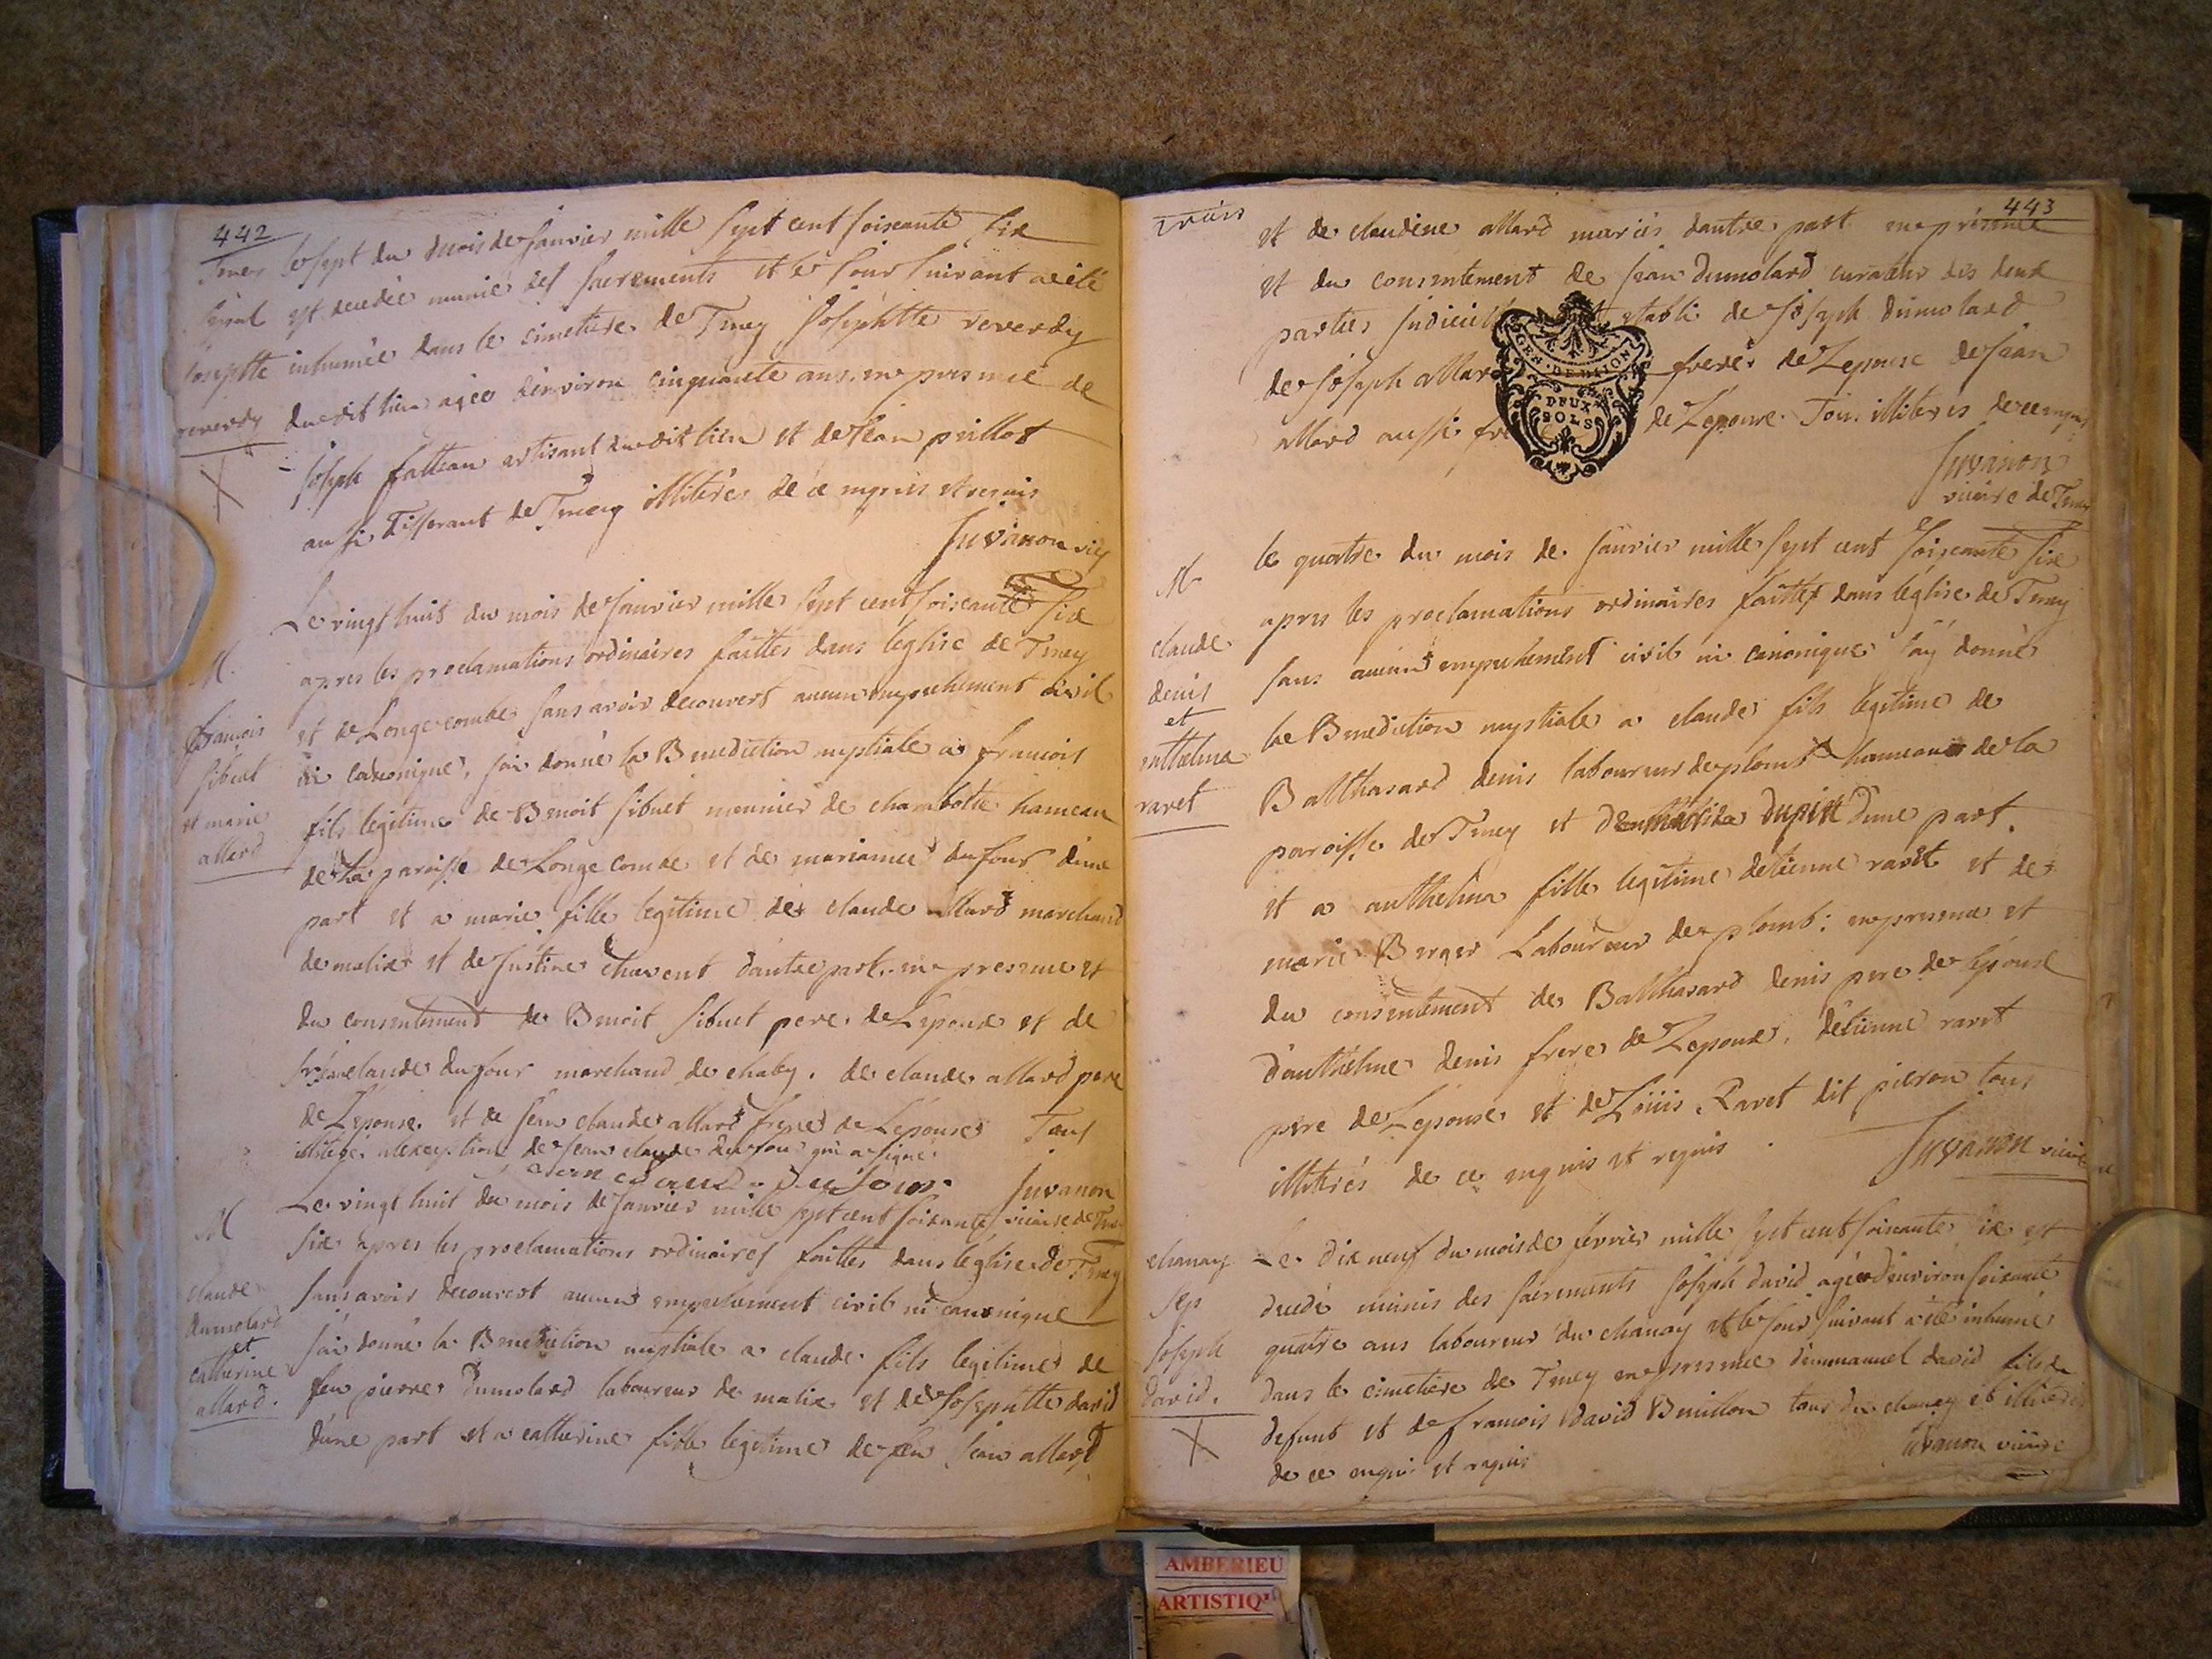 442
Tenay le sept du mois de janvier mille sept cent soiscante six
sepul est decedée munie des sacrements et le jour suivant a eté
josephtte inhumée dans le cimetiere de Tenay josephtte reverdy
reverdy dudit lieu agée d'environ cinquante ans. en presence de
joseph falteau artisant dudit lieu et de jean peillot
aussi Tisserant de Tenay illiterés de ce enquis et requis
juvanon vic
Le vingt huit du mois de janvier mille sept cent soiscante six
M. apres les proclamations ordinaires faittes dans leglise de Tenay
francois et de Longecombe sans avoir decouvert aucun empechement civil
sibuet ni canonique, jai donné la Benediction nuptiale a francois
et marie fils legitime de Benoit sibuet meunier de charabotte hameau
allard de la paroisse de Longecombe et de marianne dufour dune
part et a marie fille legitime de claude allard marchand
de malix et de justine chavent dautre part. en presence et
du consentement de Benoit sibuet pere de Lepoux et de
jean claude dufour marchand de chaley. de claude allard pere
de Lepouse. et de jean claude allard frere de Lepouse Tous
illiteres alexception de jean claude dufour qui a signé
jean claude dufour juvanon
M Le vingt huit du mois de janvier mille sept cent soixante vicaire de Tenay
six apres les proclamations ordinaires faittes dans leglise de Tenay
claude sans avoir decouvert aucun empechement civil ni canonique
dumolard
et jai donné la Benediction nuptiale a claude fils legitime de
catherine feu pierre dumolard laboureur de malix et de josephtte david
allard. d'une part et a catherine fille legitime de feu jean allard
443
et de claudine allard mariés dautre part en presence
et du consentement de jean dumolard curateur des deux
parties etabli de joseph dumolard
de joseph allard frere de Lepouse de jean
allard aussi de Lepouse Tous illiteres de ce enquis
GEN. DE DIJON
DEUX
SOLS
juvanon
vicaire de Tenay
M le quatre du mois de janvier mille sept cent soiscante six
apres les proclamations ordinaires faittes dans léglise de Tenay
claude sans aucun empechement civil ni canonique j'ay donné
denis
et la Benediction nuptiale a claude fils legitime de
anthelma Balthasard denis laboureur de plomb hameau de la
ravet paroisse de Tenay et dupin d'une part.
et a anthelma fille legitime detienne ravet et de
marie Berger Laboureur de plomb: en presence et
du consentement de Balthasard denis pere de lépoux
d'anthelme denis frere de Lepoux, detienne ravet
pere de Lepouse et de Loüis Ravet dit pieron tous
illiterés de ce enquis et requis. juvanon vicaire
chanay Le dix neuf du mois de fevrier mille sept cent soiscante six est
sep decedé munis des sacrements joseph david agé denviron soixante
joseph quatre ans laboureur du chanay et le jour suivant a eté inhumé
david. dans le cimetiere de Tenay en presence demmanuel david fils du
defunt et de francois david Bouillon tous du chanay et illiterés
de ce enquis et requis juvanon vicaire
AMBERIEU
ARTISTIQ